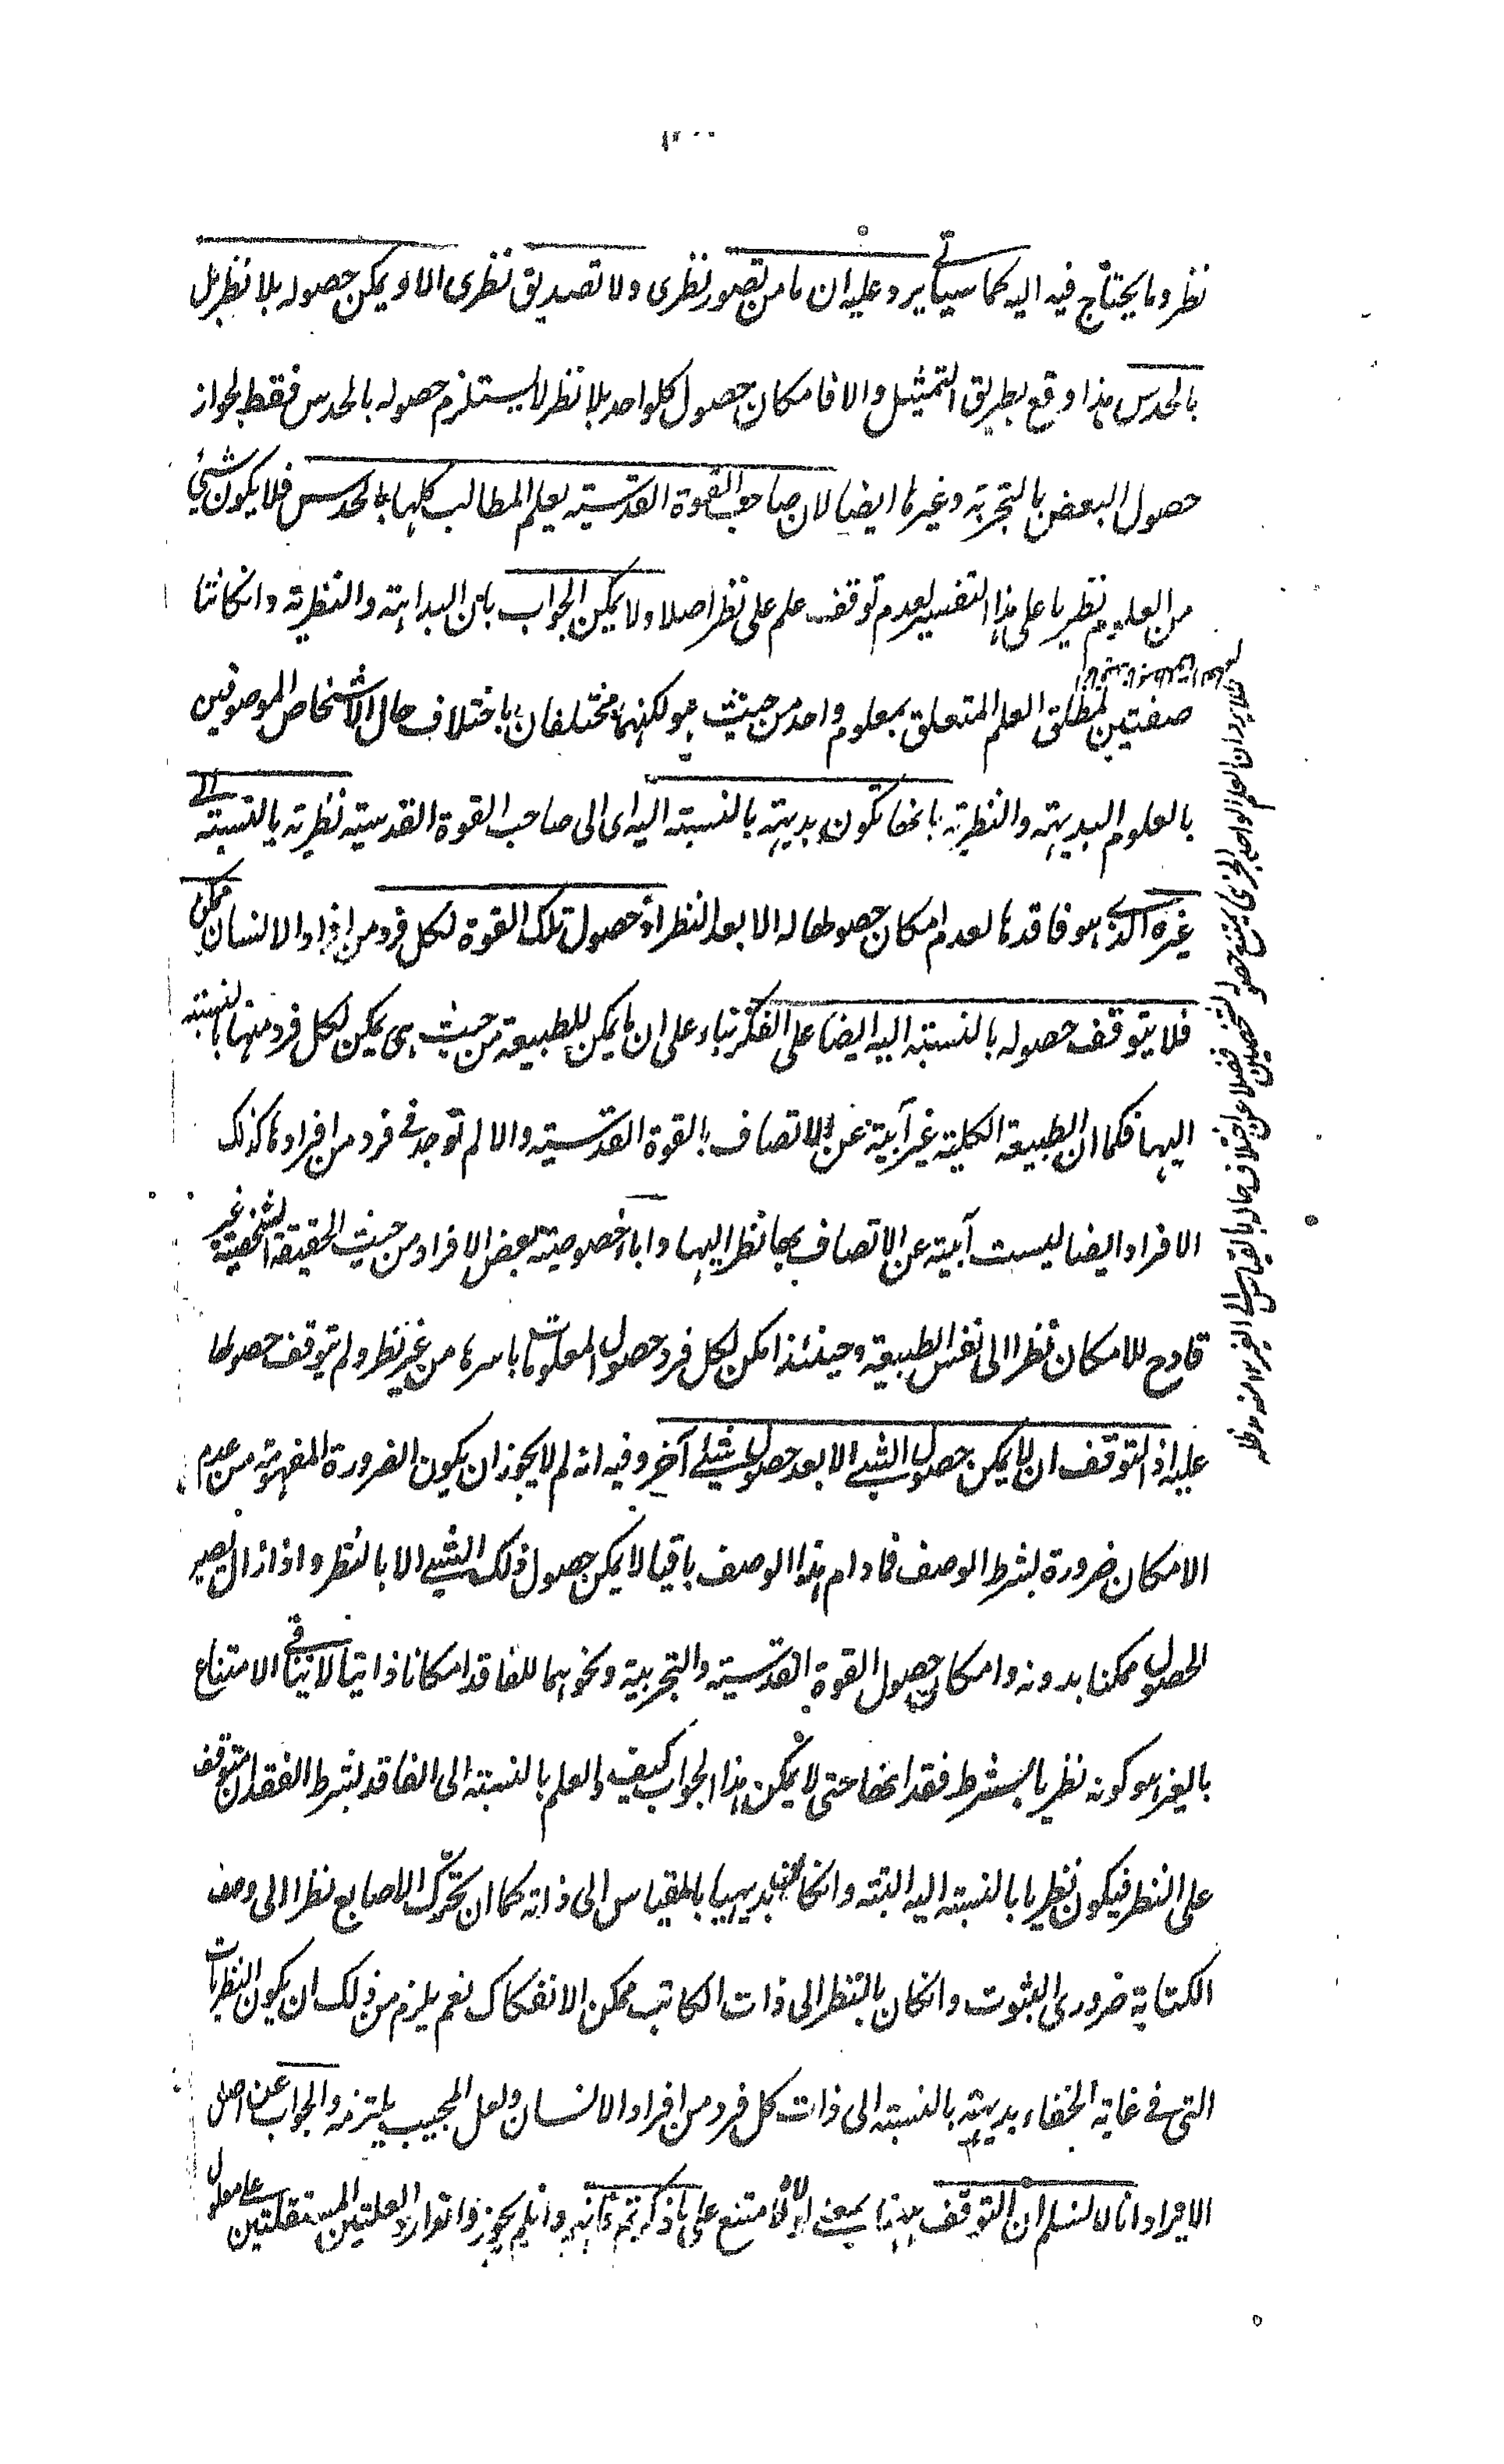 نظر وما يحتاج فيه اليه كما سياتى يرد عليه ان ما من تصور نظرى ولا تصديق نظرى الا و يمكن حصوله بلا نظر بل
بالحدس هذا وقع بطريق التمثيل والا فامكان حصول كلواحد بلا نظر لا يستلزم حصوله بالحدس فقط لجواز
حصول البعض بالتجربة وغيرها ايضا لان صاحب القوة القدسية يعلم المطالب كلها بالحدس فلا يكون شئ
من العلوم نظريا على هذا التفسير لعدم توقف علم على نظر اصلا ولا يمكن الجواب بان البداهة والنظرية وانكانتا
صفتين لمطلق العلم المتعلق بمعلوم واحد من حيث هو لكنهما مختلفان باختلاف حال الاشخاص الموصوفين
بالعلوم البديهية والنظرية بانها تكون بديهية بالنسبة اليه اى الى صاحب القوة القدسية نظرية بالنسبة الى
غيره الذى هو فاقدها لعدم امكان حصولها له الا بعد النظر اذ حصول تلك القوة لكل فرد من افراد الانسان ممكن
فلا يتوقف حصوله بالنسبة اليه ايضا على الفكر بناء على ان ما يمكن للطبيعة من حيث هى يمكن لكل فرد منها بالنسبة
اليها فكما ان الطبيعة الكلية غير آبية عن الاتصاف بالقوة القدسية والا لم توجد فى فرد من افرادها كذلك
الافراد ايضا ليست آبية عن الاتصاف بها نظر اليها واباء خصوصية بعض الافراد من حيث الحقيقة الشخصية غير
قادح للامكان نظرا الى نفس الطبيعة وحينئذ امكن لكل فرد حصول المعلومات باسرها من غير نظر ولم يتوقف حصولها
عليه اذ التوقف ان لا يمكن حصول الشئ الا بعد حصول شئ آخر وفيه انه لم لا يجوز ان يكون الضرورة المفهومة من عدم
الامكان ضرورة بشرط الوصف فما دام هذا الوصف باقيا لا يمكن حصول ذلك الشئ الا بالنظر واذا زال يصير
الحصول ممكنا بدونه وامكان حصول القوة القدسية والتجربية ونحوهما للفاقد امكانا ذاتيا لا ينافى الامتناع
بالغير هو كونه نظريا بشرط فقدانها حتى لا يمكن هذا الجواب كيف والعلم بالنسبة الى الفاقد بشرط الفقدان متوقف
على النظر فيكون نظريا بالنسبة اليه البتة وانكان بديهيا بالقياس الى ذاته كما ان تحرك الاصابع نظرا الى وصف
الكتابة ضرورى الثبوت وانكان بالنظر الى ذات الكاتب ممكن الانفكاك نعم يلزم من ذلك ان يكون النظريات
التى فى غاية الخفاء بديهية بالنسبة الى ذات كل فرد من افراد الانسان ولعل المجيب يلتزمه والجواب عن اصل
الايراد انا لا نسلم ان التوقف هذا بمعنى لولاه لامتنع على ما ذكرتم فانهم جوزوا توارد العلتين المستقلتين على معلول
فلا يرد ان العلم الواحد الجزئى يمتنع حصوله لشخصين فضلا عن اختلاف حاله بالقياس الى الغير ١٢ منه مد ظله